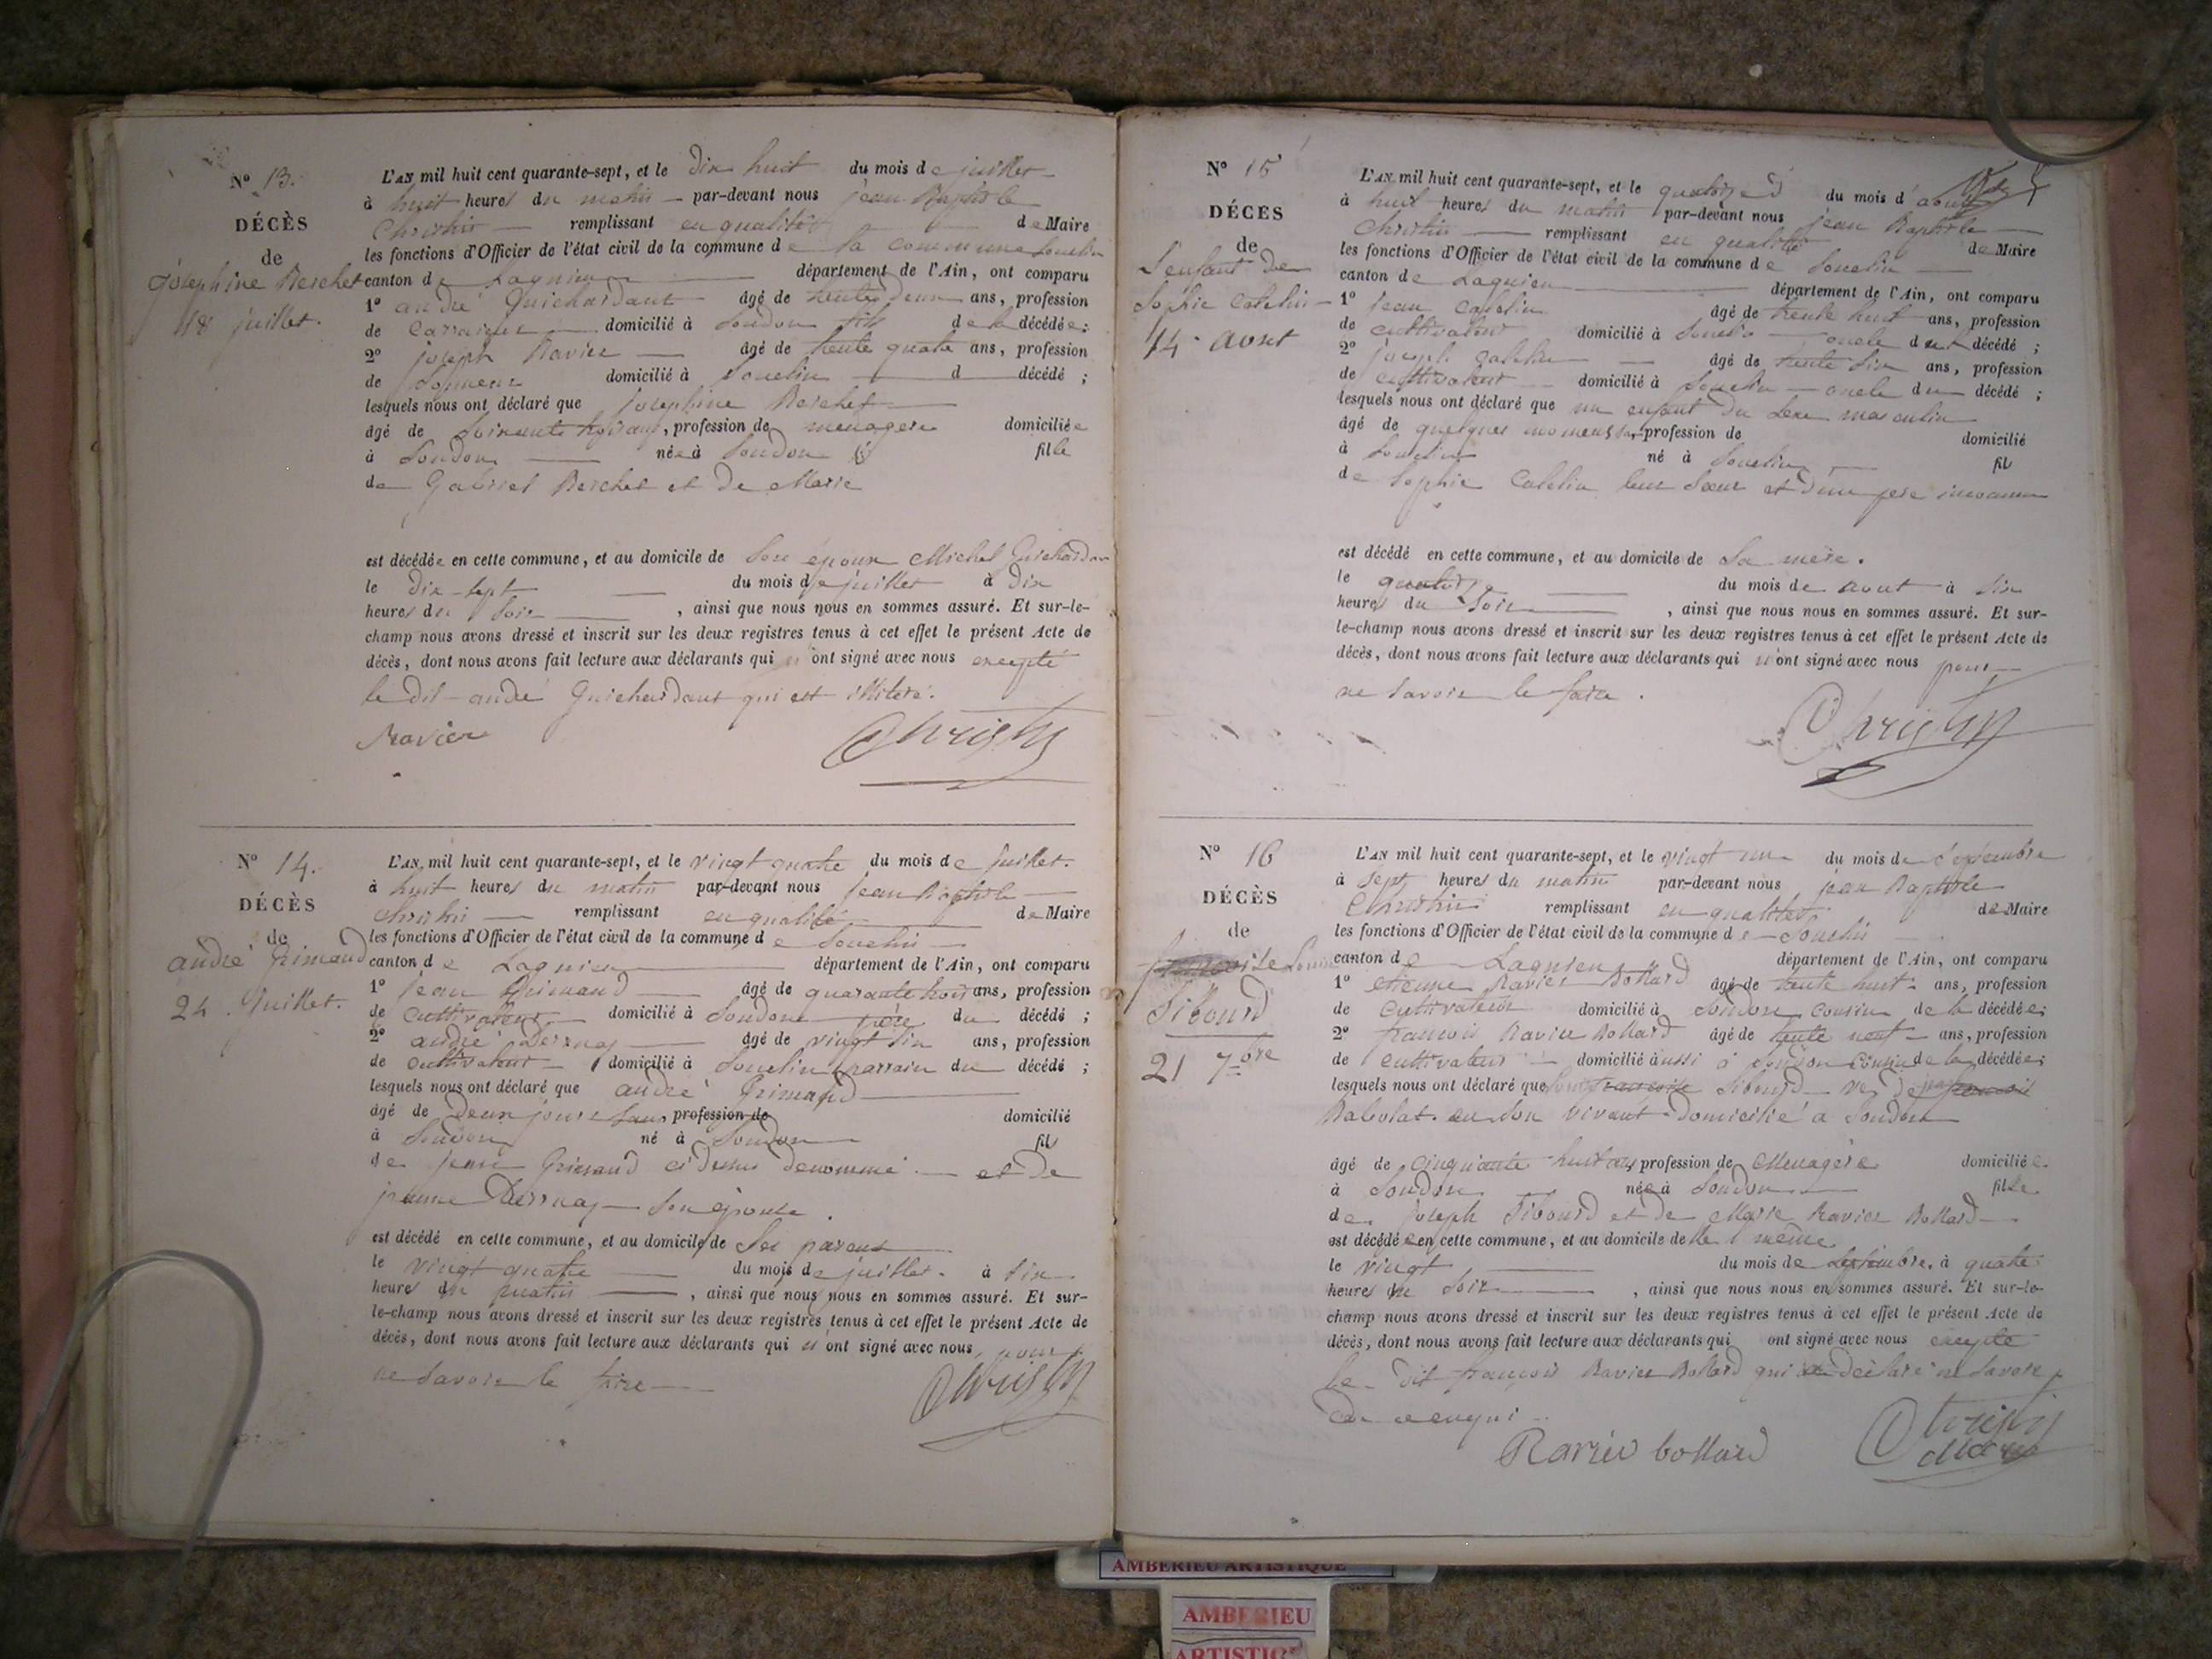 N° 13.
DÉCÈS
de
joséphine Berchet
18 juillet.
L'AN mil huit cent quarante-sept, et le dix huit du mois de juillet
à huit heures du matin par-devant nous jean Baptiste
Christin remplissant en qualité de Maire
les fonctions d'Officier de l'état civil de la commune de la commune Souclin
canton de Lagnieu département de l'Ain, ont comparu
1° andré Guichardant âgé de trente deux ans, profession
de domicilié à Soudon fils de la décédée ;
2° joseph Ravier âgé de trente quatre ans, profession
de domicilié à Souclin d décédé ;
lesquels nous ont déclaré que joséphine Berchet
âgé de soixante ans, profession de ménagère domiciliée
à Soudon née à Soudon fille
de Gabriel Berchet et de Marie
est décédée en cette commune, et au domicile de son époux Michel Guichardant
le dix-sept du mois de juillet à dix
heures du soir , ainsi que nous nous en sommes assuré. Et sur-le-
champ nous avons dressé et inscrit sur les deux registres tenus à cet effet le présent Acte de
décès, dont nous avons fait lecture aux déclarants qui ont signé avec nous excepté
le dit andré Guichardant qui est illitéré.
Ravier Christin
N° 14.
DÉCÈS
de
andré Grimaud
24 Juillet.
L'AN mil huit cent quarante-sept, et le vingt quatre du mois de juillet.
à huit heures du matin par-devant nous jean Baptiste
Christin remplissant en qualité de Maire
les fonctions d'Officier de l'état civil de la commune de Souclin
canton de Lagnieu département de l'Ain, ont comparu
1° jean Grimaud âgé de quarante trois ans, profession
de cultivateur domicilié à Soudon père du décédé ;
2° andré âgé de vingt six ans, profession
de cultivateur domicilié à Souclin parrain du décédé ;
lesquels nous ont déclaré que andré Grimaud
âgé de deux jours sans profession de domicilié
à Soudon né à Soudon fils
de jean Grimaud ci dessus dénommé et de
jeanne son épouse.
est décédé en cette commune, et au domicile de ses parens
le vingt quatre du mois de juillet. à six
heures du matin , ainsi que nous nous en sommes assuré. Et sur-
le-champ nous avons dressé et inscrit sur les deux registres tenus à cet effet le présent Acte de
décès, dont nous avons fait lecture aux déclarants qui n'ont signé avec nous pour
ne savoir le faire
Christin
N° 15
DÉCÈS
de
L'enfant de
Sophie Cattelin
14 avut
L'AN mil huit cent quarante-sept, et le quatorze du mois d'avut
à huit heures du matin par-devant nous jean Baptiste
Christin remplissant en qualité de Maire
les fonctions d'Officier de l'état civil de la commune de Souclin
canton de Lagnieu département de l'Ain, ont comparu
1° jean Cattelin âgé de trente huit ans, profession
de cultivateur domicilié à Souclin oncle du décédé ;
2° joseph Cattelin âgé de trente six ans, profession
de cultivateur domicilié à Souclin oncle du décédé ;
lesquels nous ont déclaré que un enfant du sexe masculin
âgé de quelques momens profession de domicilié
à Souclin né à Souclin fil
de Sophie Cattelin leur sœur et d'un père inconnu
est décédé en cette commune, et au domicile de sa mère.
le quatorze du mois de avut à six
heures du soir , ainsi que nous nous en sommes assuré. Et sur-
le-champ nous avons dressé et inscrit sur les deux registres tenus à cet effet le présent Acte de
décès, dont nous avons fait lecture aux déclarants qui n'ont signé avec nous pour
ne savoir le faire.
Christin
N° 16
DÉCÈS
de
françoise Louise
Tibourd
21 7bre
L'AN mil huit cent quarante-sept, et le vingt un du mois de septembre
à sept heures du matin par-devant nous jean Baptiste
Christin remplissant en qualité de Maire
les fonctions d'Officier de l'état civil de la commune de Souclin
canton de Lagnieu département de l'Ain, ont comparu
1° etienne Ravier Bollard âgé de trente huit ans, profession
de cultivateur domicilié à Soudon cousin de la décédée ;
2° françois Ravier Bollard âgé de trente neuf ans, profession
de cultivateur domicilié aussi à Soudon cousin de la décédée ;
lesquels nous ont déclaré que françoise Tibourd
Rabolat en son vivant domicilié à Soudon
âgé de cinquante huit ans profession de Ménagère domiciliée
à Soudon née à Soudon fille
de joseph Tibourd et de Marie Ravier Bollard
est décédée en cette commune, et au domicile de elle même
le vingt du mois de septembre, à quatre
heures du soir , ainsi que nous nous en sommes assuré. Et sur-le-
champ nous avons dressé et inscrit sur les deux registres tenus à cet effet le présent Acte de
décès, dont nous avons fait lecture aux déclarants qui ont signé avec nous excepté
le dit françois Ravier Bollard qui a déclaré ne savoir
de ce enquis
Ravier bollard Christin
Maire
AMBERIEU ARTISTIQUE
AMBERIEU
ARTISTIQ